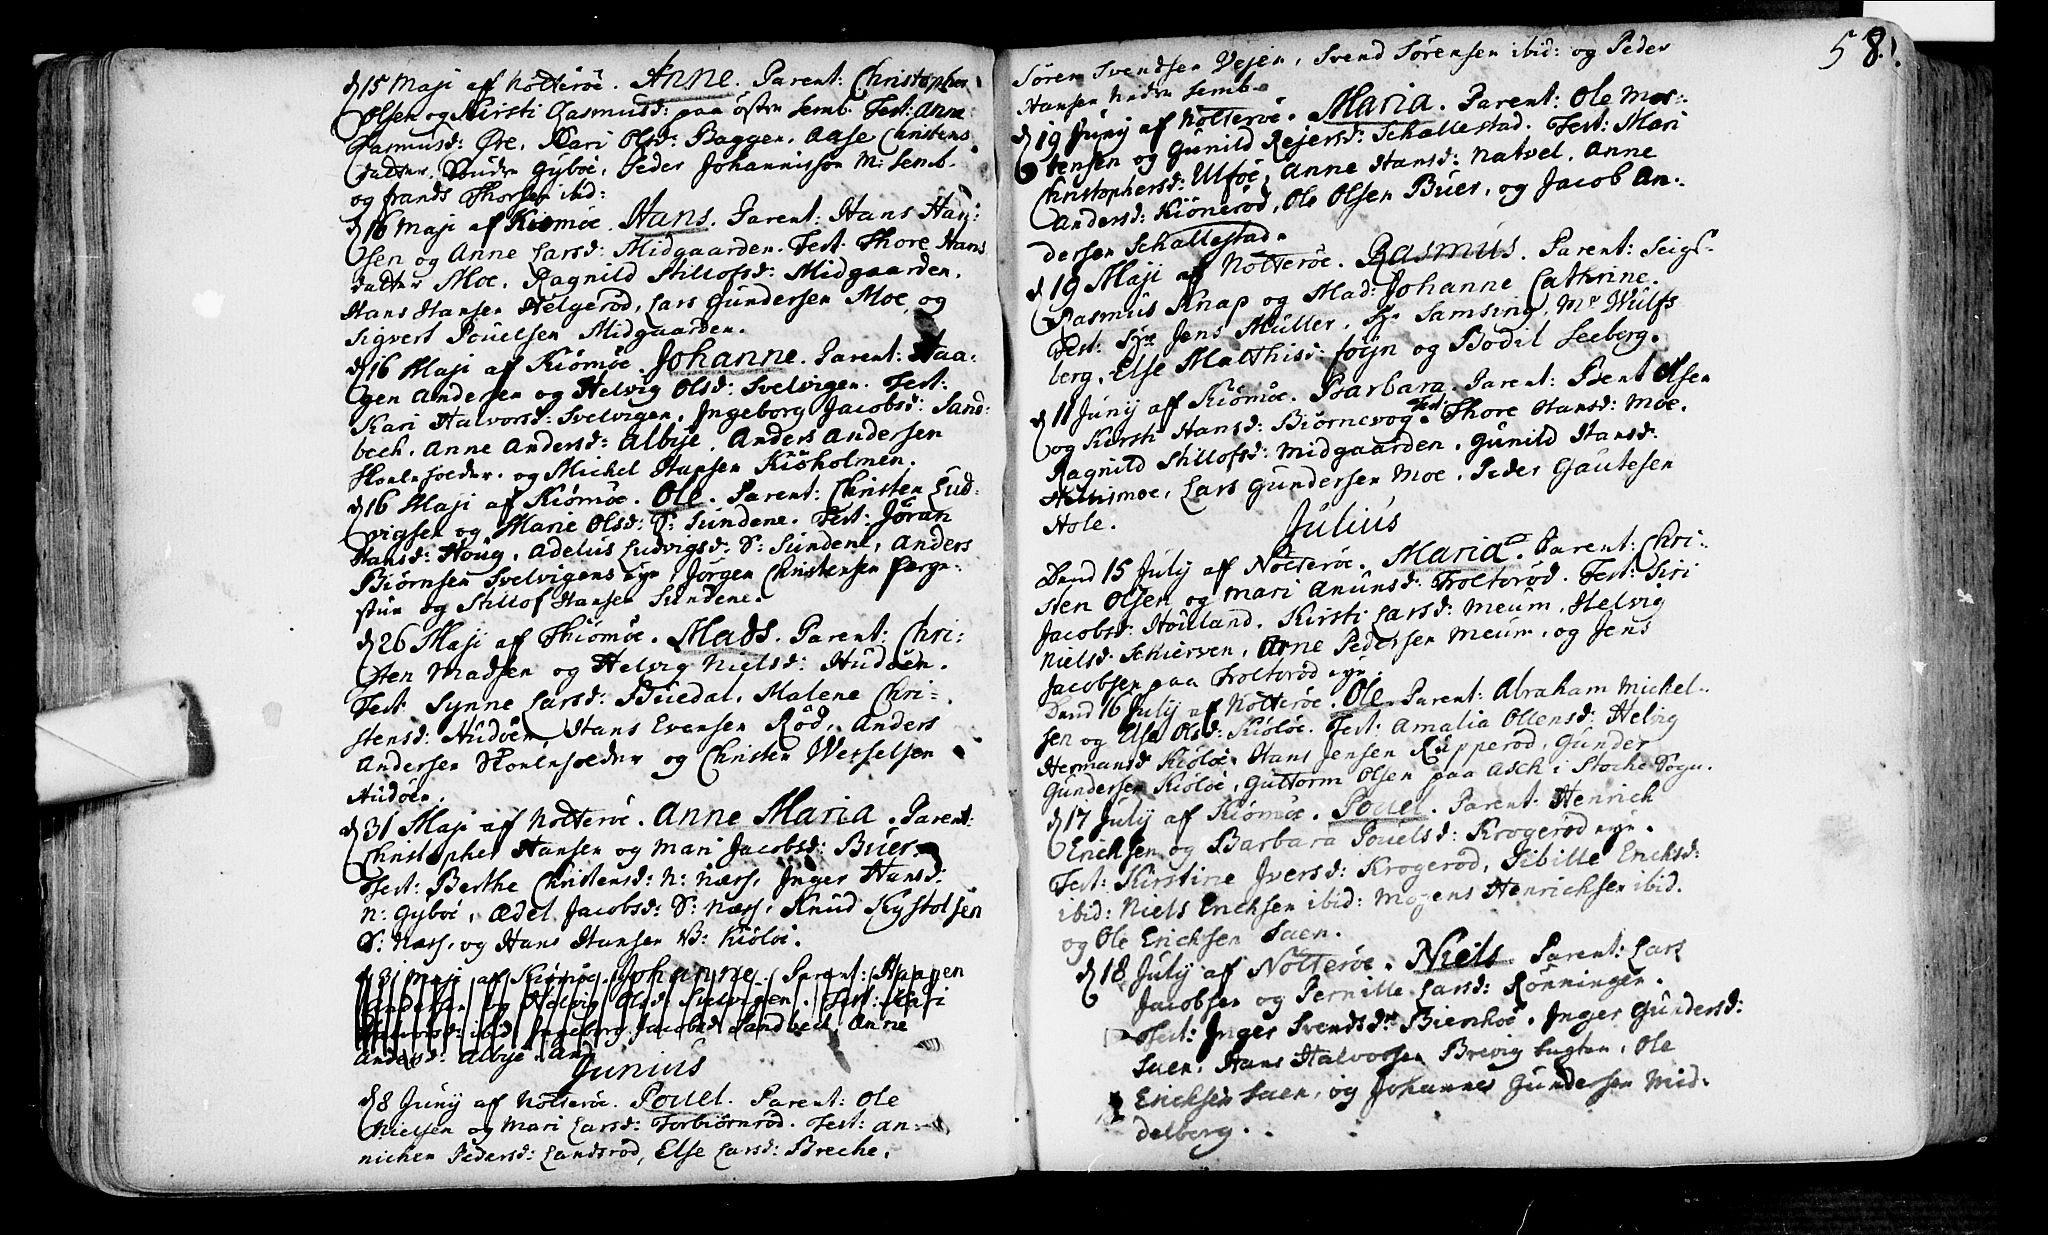 d 15 Maji af Nötteröe. Anne. Parent: Christopher
Olsen og Kirsti Rasmusd: paa östre Semb. Test: Anne
Rasmusd: Öre, Kari Olsd: Baggen, Aase Christens
datter Söndre Gyböe, Peder Johannissön M: Semb.
og frands Thorsen ibid:
d 16 Maji af Kiömöe. Hans. Parent: Hans Han:
sen og Anne Larsd: Midgaarden. Test: Thore Hans
datter Moe, Ragnild Stillofsd: Midgaarden,
Hans Hansen Helgeröd, Lars Gundersen Moe og
Sigvert Pouelsen Midgaarden.
d 16 Maji af Kiömöe. Johanne. Parent: Haa:
gen Andersen og Helvig Olsd: Svelvigen. Test:
Kari Halvorsd: Svelvigen, Ingeborg Jacobsd: Sand:
bech, Anne Andersd: Albije, Anders Andersen
og Michel Hansen Kiöholmen.
d 16 Maji af Kiömöe. Ole. Parent: Christen Lud:
vigsen og Marie Olsd: S: Sundene. Test: Jöran
Hansd: Houg, Adelus Ludvigsd: S: Sundene, Anders
Biörnsen Svelvigens eye, Jörgen Christensen ferge:
stun og Stillof Hansen Sundene.
d 26 Maji af Thiömöe. Mads. Parent: Chri:
sten Madsen og Helvig Nielsd: Hudöen.
Test: Synne Larsd: Buedal, Malene Chri:
stensd: Hudöen, Hans Evensen Röd, Anders
Andersen og Christen Wesselsen
Hudöen.
d 31 Maji af Nötteröe. Anne Maria. Parent:
Christopher Hansen og Mari Jacobsd: Buer.
Test: Berthe Christensd: N: Næss, Inger Hansd:
N: Gyböe, Ædel Jacobsd: S: Næss, Knud Kystolsen
S: Næss, og Hans Hansen V: Kiölöe.
d 31 Maji af Kiömöe. Johanne. Parent: Haagen
Andersen og Helvig Olsd: Svelvigen. Test: Kari
Halvorsd: ibid: Ingeborg Jacobsd: Sandbech, Anne
Andersd: Albije. And
Junius
d 8 Junij af Nötteröe. Pouel. Parent: Ole
Nielsen og Mari Larsd: Torbiörnröd. Test: An:
nichen Pedersd: Landsröd, Else Larsd: Breche,
58.
Sören Svendsen Vejen, Svend Sörensen ibid: og Peder
Hansen Nedre Semb.
d 19 Junij af Nötteröe. Maria. Parent: Ole Mor:
tensen og Gunild Rejersd: Schallestad. Test: Mari
Christophersd: Ulföe, Anne Hansd: Natvel, Anne
Andersd: Kiöneröd, Ole Olsen Buer, og Jacob An:
dersen Schallestad.
d 19 Maji af Nötteröe. Rasmus. Parent: Seigr
Rasmus Knap og Mad: Johanne Cathrine.
Test: Sr Jens Müller, Sr Samsing, Mr Wulfs
berg, Else Matthisd: foijn og Bodil Seeberg.
d 11 Junij aff Kiömöe. Barbara. Parent: Bent Olsen
og Kirsti Hansd: Biörnevog. Test: Thore Hansd: Moe.
Ragnild Stillofsd: Midgaarden, Gunild Hansd:
moe, Lars Gundersen Moe, Peder Gautesen
Hole.
Julius
Dend 15 Julij af Nötteröe. Maria. Parent: Chri:
sten Olsen og Mari Anunsd: Troltoröd. Test: Siri
Jacobsd: Höuland, Kirsti Larsd: Meum, Helvig
Nielsd: Schierven, Arne Pedersen Meum, og Jens
Jacobsen paa Troltoröd eye
Dend 16 Julij af Nötteröe. Ole. Parent: Abraham Michel:
sen og Else Olsd: Kiölöe. Test: Amalia Ollensd: Helvig
Hermansd: Kiölöe, Hans Jensen Rupperöd, Gunder
Gundersen Kiölöe, Guttorm Olsen paa Asch i Stoche Sogn.
d 17 Julij af Kiömöe. Pouel. Parent: Henrich
Erichsen og Barbara Pouelsd: Krogeröd eye.
Test: Kirstine Iversd: Krogeröd, Sibille Ericksd:
ibid: Niels Erichsen ibid: Mogens Henrichsen ibid.
og Ole Erichsen Saen.
d 18 Julij af Nötteröe. Niels. Parent: Lars
Jacobsen og Pernille Larsd: Rönningen.
Test: Inger Svendsdr Bierköe, Inger Gundersd:
Saen, Hans Halvorsen Brevig bugten, Ole
Erichsen Saen, og Johannes Gundersen Mid:
delberg.